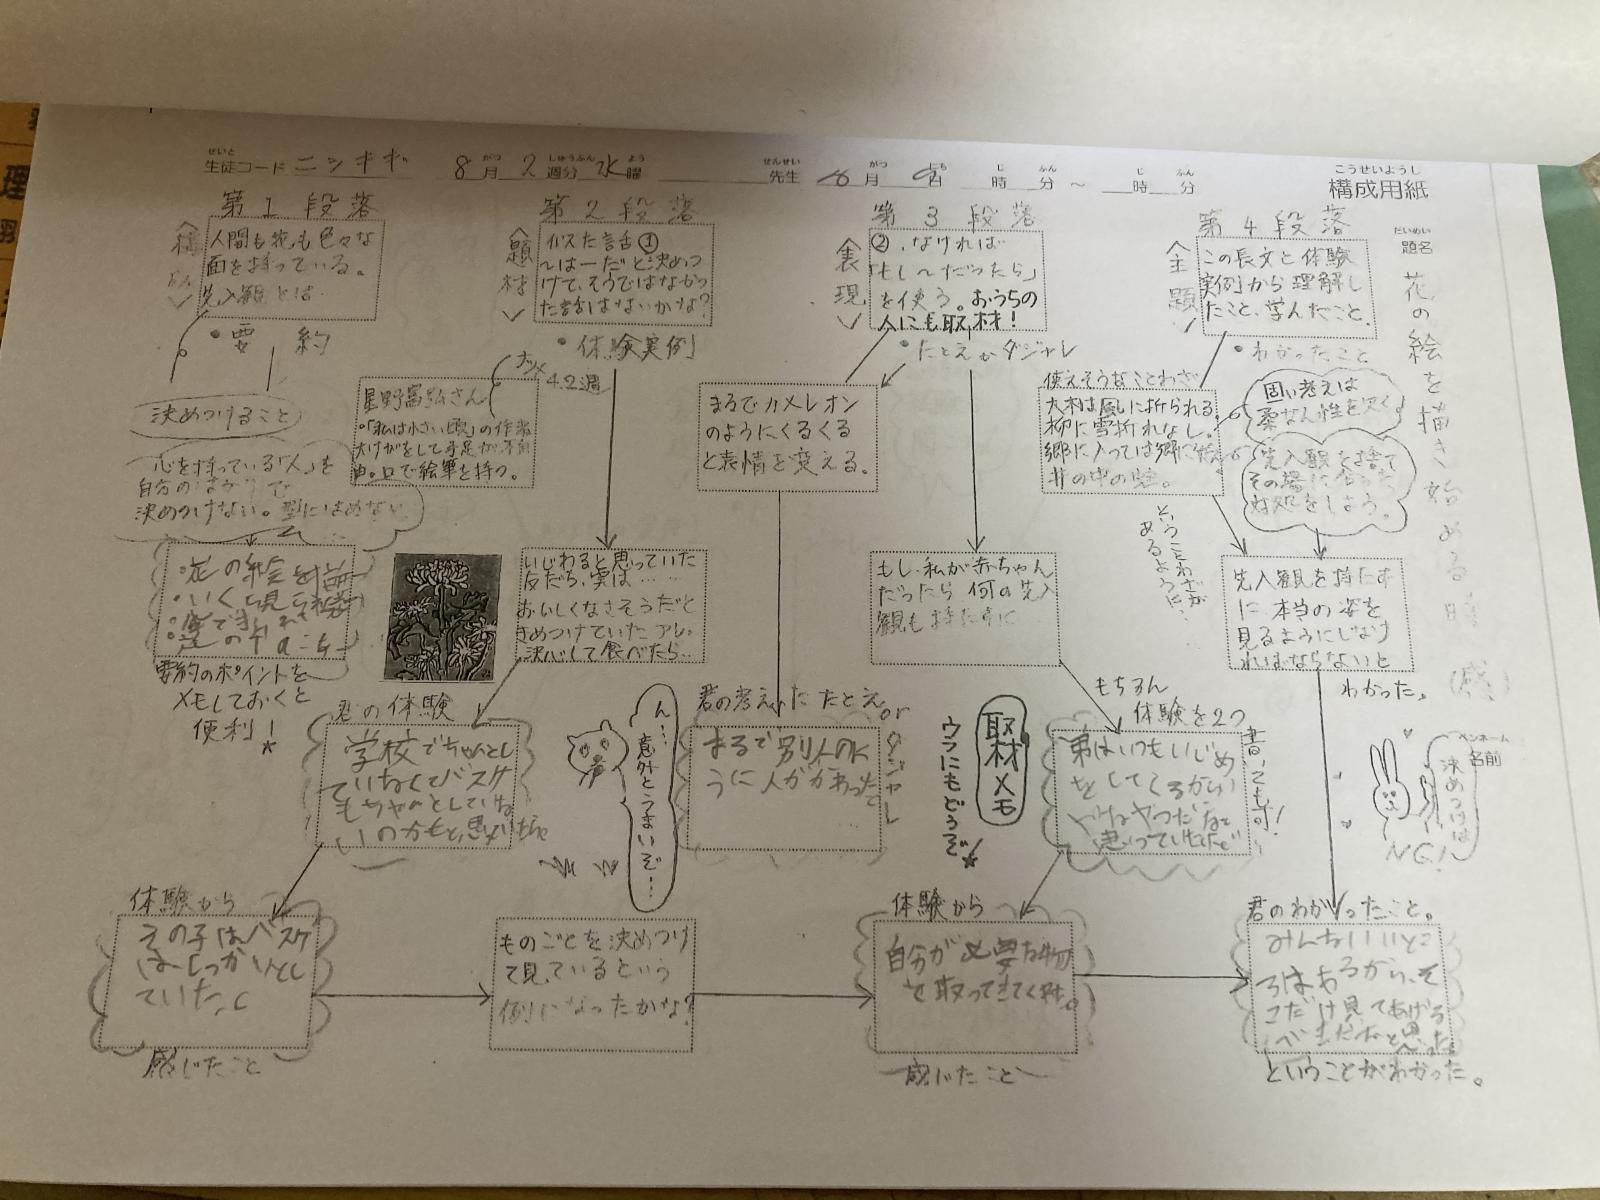 せいと
生徒コード ニシキギ
8月2週分 水曜
がつ しゅうぶん よう
せんせい
先生
がつ
月
じ ふん
時 分 ~ 時 分
こうせいようし
構成用紙
だいめい
題名
花の絵を描き始める時(感)
ペンネーム
名前
第1段落
人間も花も色々な
面を持っている。
先入観とは…
・要約
決めつけること
心を持っている「人」を
自分の
決めつけない。型にはめない
・花の絵を描
要約のポイントを
メモしておくと
便利!
第2段落
〈題材〉
似た話①
~は―だと決めつ
けて、そうではなかっ
た話はないかな?
・体験実例
ナツメ
4.2週
星野富弘さん
・「私は小さい頃」の作者
大けがをして手足が不自
由。口で絵筆を持つ。
いじわると思っていた
友だち、実は……
おいしくなさそうだと
きめつけていたアレ。
決心して食べたら…
君の体験
学校でちゃんとし
ていなくてバスケ
もちゃんとしていな
いのかもと思
ん…意外とうまいぞ…
体験から
その子はバスケ
はしっかりとし
ていた。
感じたこと
ものごとを決めつけ
て見ているという
例になったかな?
第3段落
〈表現〉
②、なければ
「もし~だったら」
を使う。おうちの
人にも取材!
・たとえかダジャレ
まるでカメレオン
のようにくるくる
と表情を変える。
君の考えたたとえorダジャレ
まるで別人のよ
うに人がかわった
もし私が赤ちゃん
だったら何の先入
観も持たずに
取材メモ
ウラにもどうぞ
もちろん
体験を2つ
書いても可!
弟はいつもいじめ
をしてくるから
思っていたけど
体験から
自分が必要な物
を取ってきてくれた。
感じたこと
第4段落
〈主題〉
この長文と体験
実例から理解し
たこと、学んたこと。
・わかったこと
使えそうなことわざ
大木は風に折られる。
柳に雪折れなし。
郷に入っては郷に従え
井の中の蛙。
ということわざが
あるように…
固い考えは
柔なん性を欠く。
先入観を捨て
その場に合った
対処をしよう。
先入観を持たず
に本当の姿を
見るようにしなけ
ればならないと
わかった。
決めつけは
NG!
君のわかったこと。
みんないいとこ
ろはあるから、そ
こだけ見てあげる
べきだなと思った。
ということがわかった。